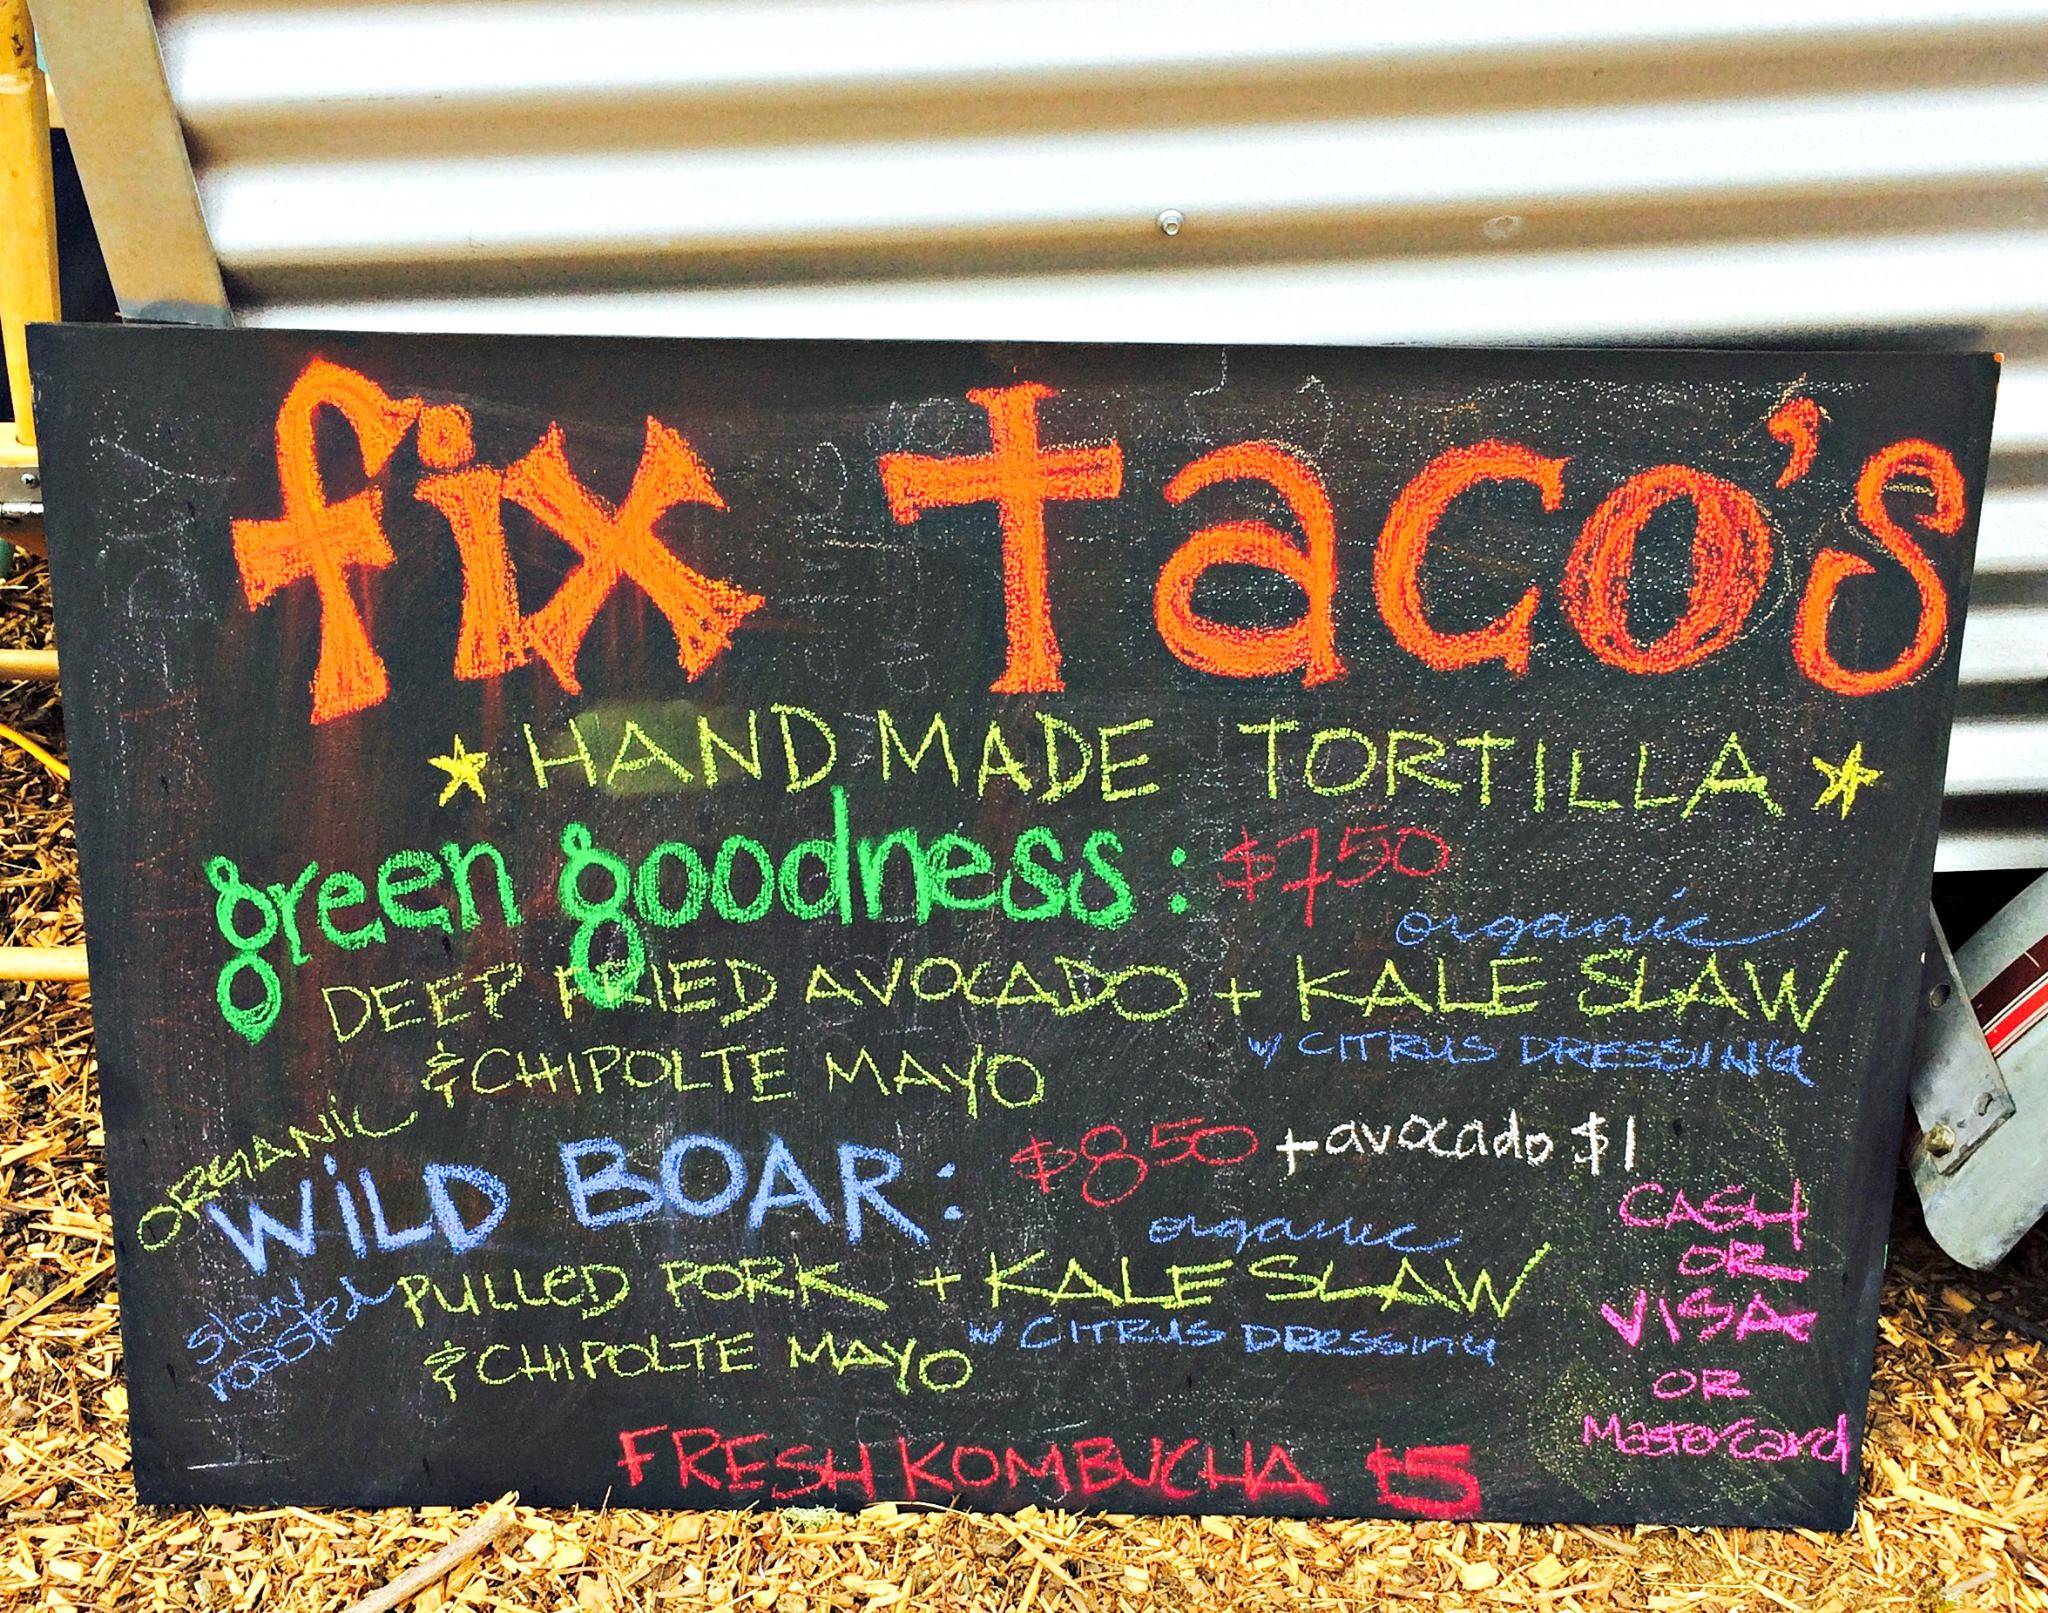 fix taco's
HAND MADE TORTILLA
green goodness: $750
organic
DEEP FRIED AVOCADO + KALE SLAW
w/ CITRUS DRESSING
& CHIPOLTE MAYO
ORGANIC
WiLD BOAR: $850 +avocado $1
organic
slow roasted
PULLED PORK + KALE SLAW
w CITRUS DRESSING
& CHIPOLTE MAYO
CASH
OR
VISA
OR
Mastercard
FRESH KOMBUCHA $5